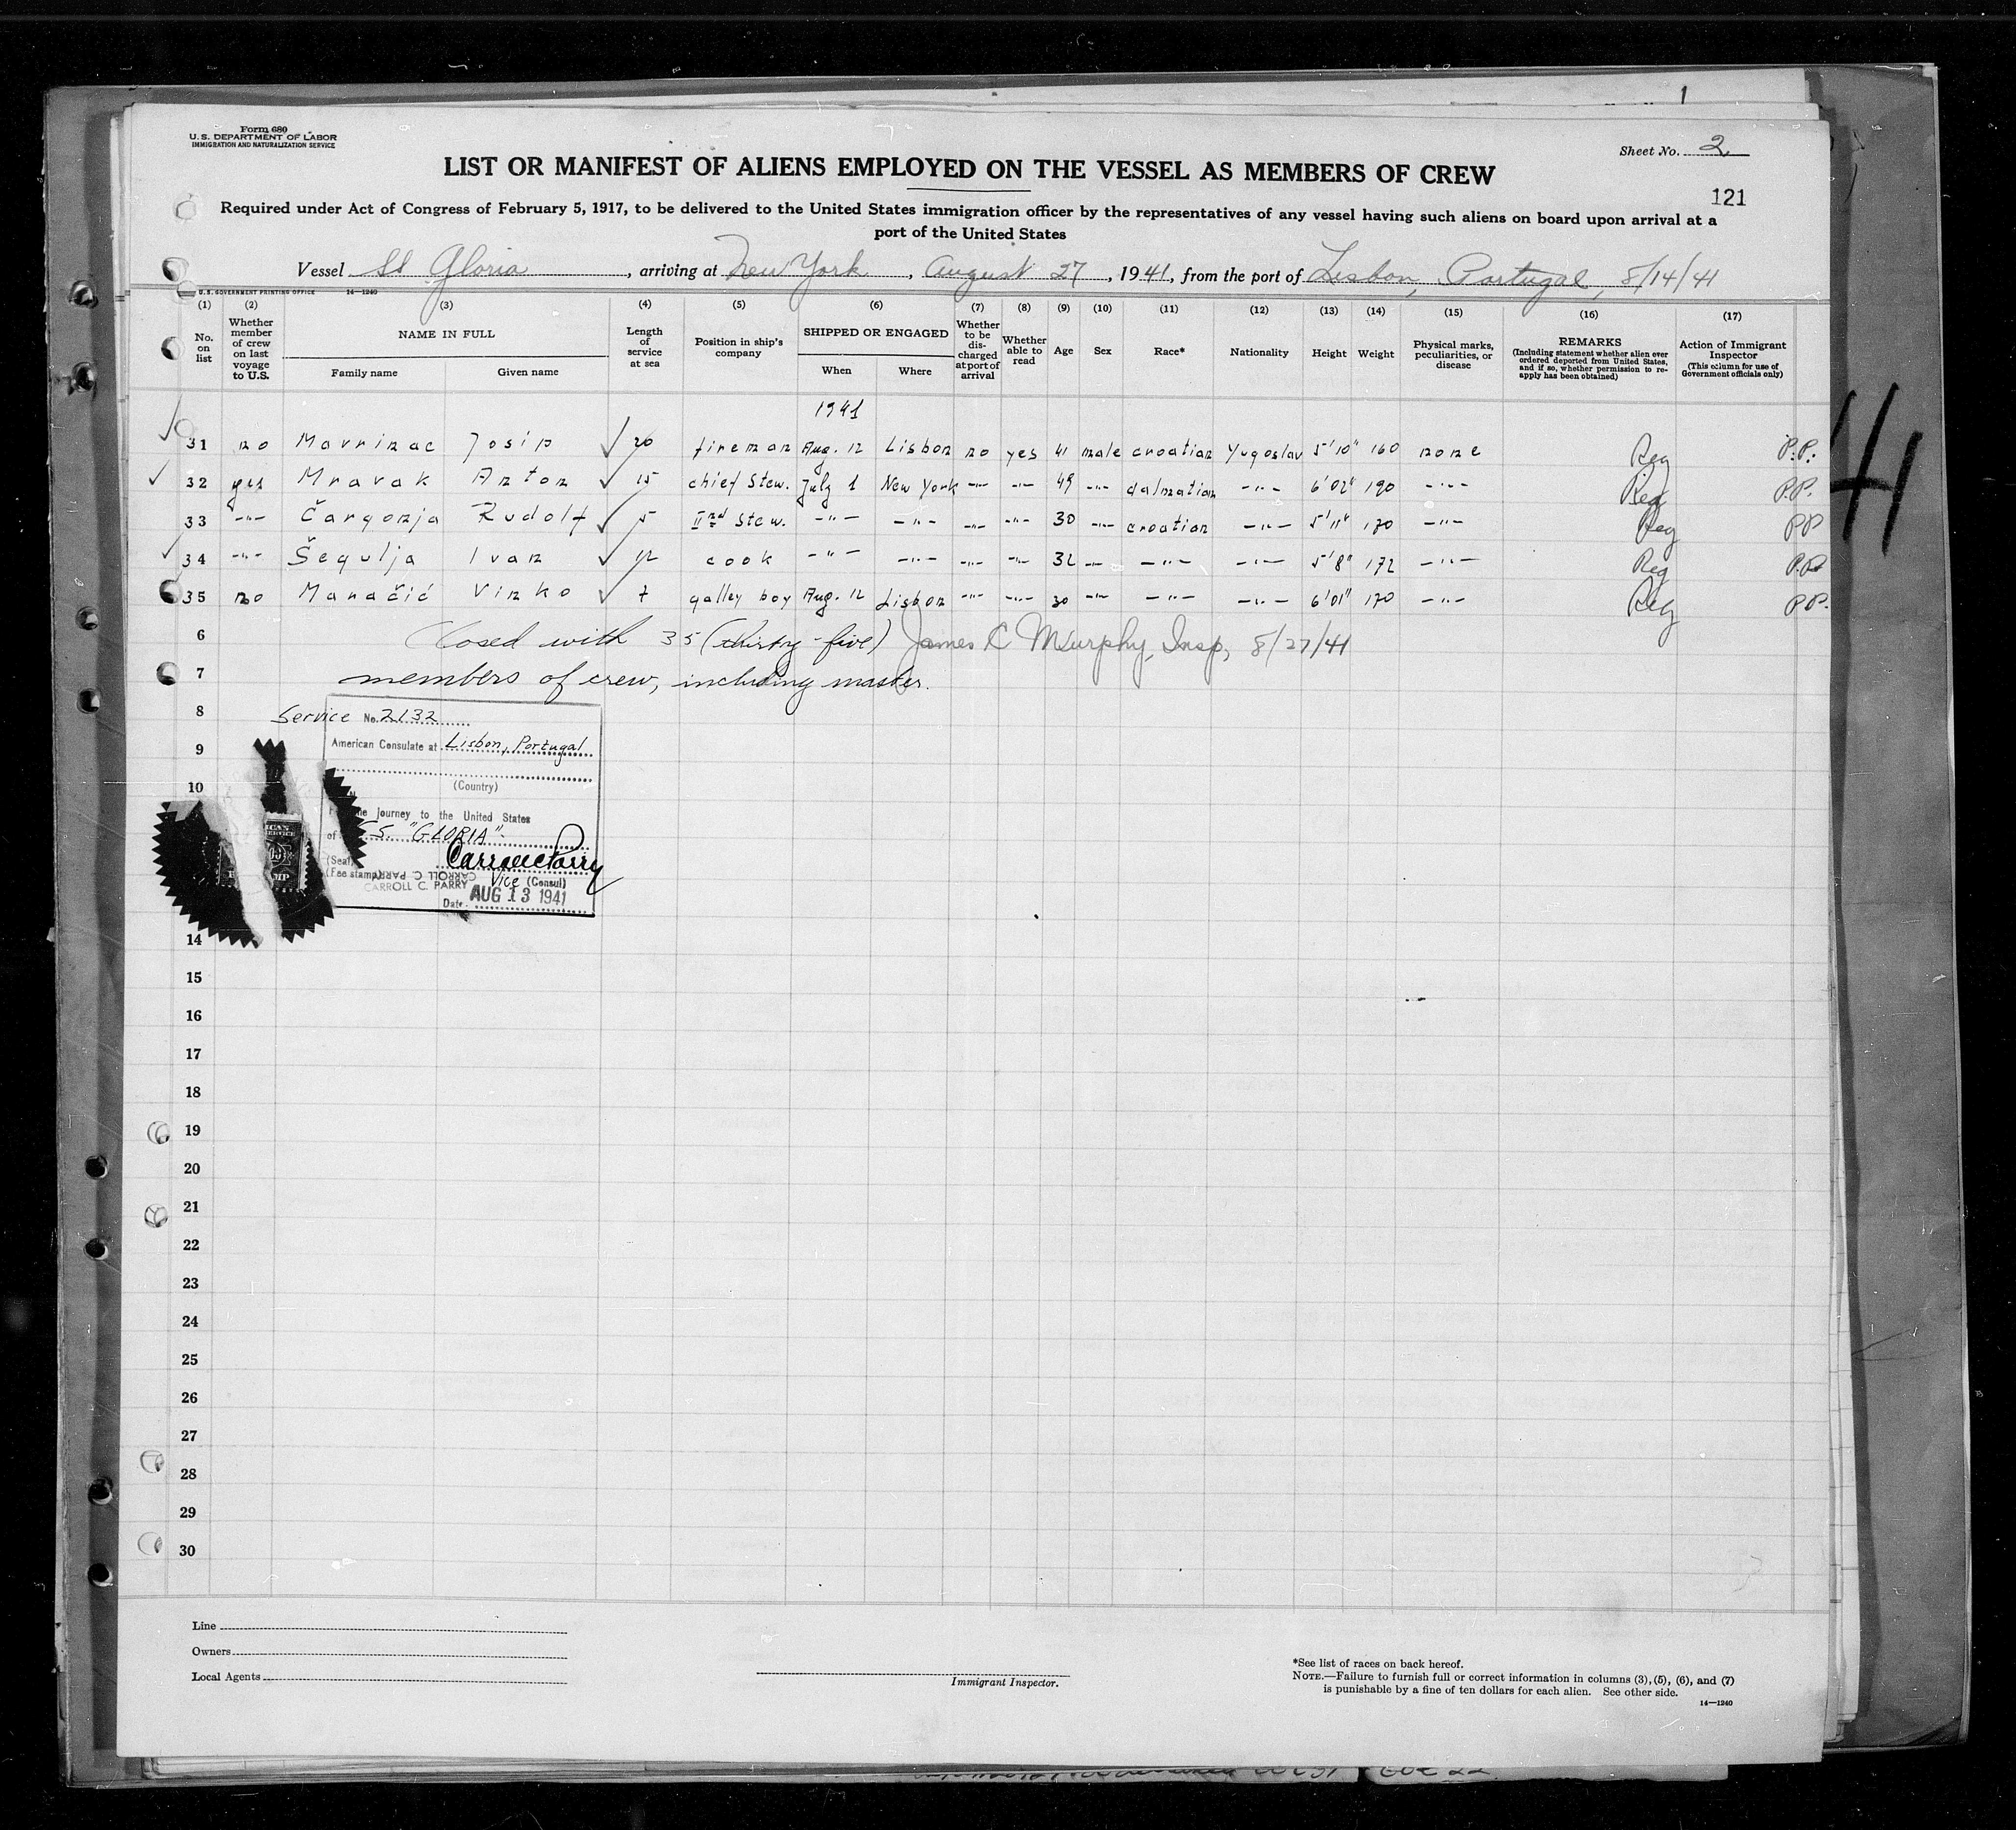 1
Form 680
U. S. DEPARTMENT OF LABOR
IMMIGRATION AND NATURALIZATION SERVICE
Sheet No. 2
LIST OR MANIFEST OF ALIENS EMPLOYED ON THE VESSEL AS MEMBERS OF CREW
121
Required under Act of Congress of February 5, 1917, to be delivered to the United States immigration officer by the representatives of any vessel having such aliens on board upon arrival at a
port of the United States
Vessel SS Gloria, arriving at New York, August 27, 1941, from the port of Lisbon, Portugal, 8/14/41
U. S. GOVERNMENT PRINTING OFFICE 14—1240
(1) (2) (3) (4) (5) (6) (7) (8) (9) (10) (11) (12) (13) (14) (15) (16) (17)
No. on list
Whether member of crew on last voyage to U.S.
NAME IN FULL
Family name Given name
Length of service at sea
Position in ship's company
SHIPPED OR ENGAGED
When Where
Whether to be discharged at port of arrival
Whether able to read
Age Sex Race* Nationality Height Weight
Physical marks, peculiarities, or disease
REMARKS
(Including statement whether alien ever ordered deported from United States, and if so, whether permission to reapply has been obtained)
Action of Immigrant Inspector
(This column for use of Government officials only)
1941
31 no Mavrinac Josip 20 fireman Aug. 12 Lisbon no yes 41 male croatian Yugoslav 5'10" 160 none Reg P.P.
32 yes Mravak Anton 15 chief Stew. July 1 New York -"- -"- 49 -"- dalmatian -"- 6'02" 190 -"- Reg P.P.
33 -"- Čargonja Rudolf 5 IInd Stew. -"- -"- -"- -"- 30 -"- croatian -"- 5'11" 170 -"- Reg PP
34 -"- Šegulja Ivan 12 cook -"- -"- -"- -"- 32 -"- -"- -"- 5'8" 172 -"- Reg P.P.
35 no Maračić Vinko 7 galley boy Aug. 12 Lisbon -"- -"- 30 -"- -"- -"- 6'01" 170 -"- Reg P.P.
6 Closed with 35 (thirty-five) James C Murphy, Insp, 8/27/41
7 members of crew, including master.
8 Service No. 2132
9 American Consulate at Lisbon, Portugal
10 (Country)
journey to the United States
of S.S. "GLORIA"
(Seal) Carroll C Parry
(Fee stamp) CARROLL C. PARRY
CARROLL C. PARRY Vice (Consul)
Date AUG 13 1941
14
15
16
17
18
19
20
21
22
23
24
25
26
27
28
29
30
Line
Owners
Local Agents
Immigrant Inspector.
*See list of races on back hereof.
NOTE.—Failure to furnish full or correct information in columns (3), (5), (6), and (7)
is punishable by a fine of ten dollars for each alien. See other side.
14—1240